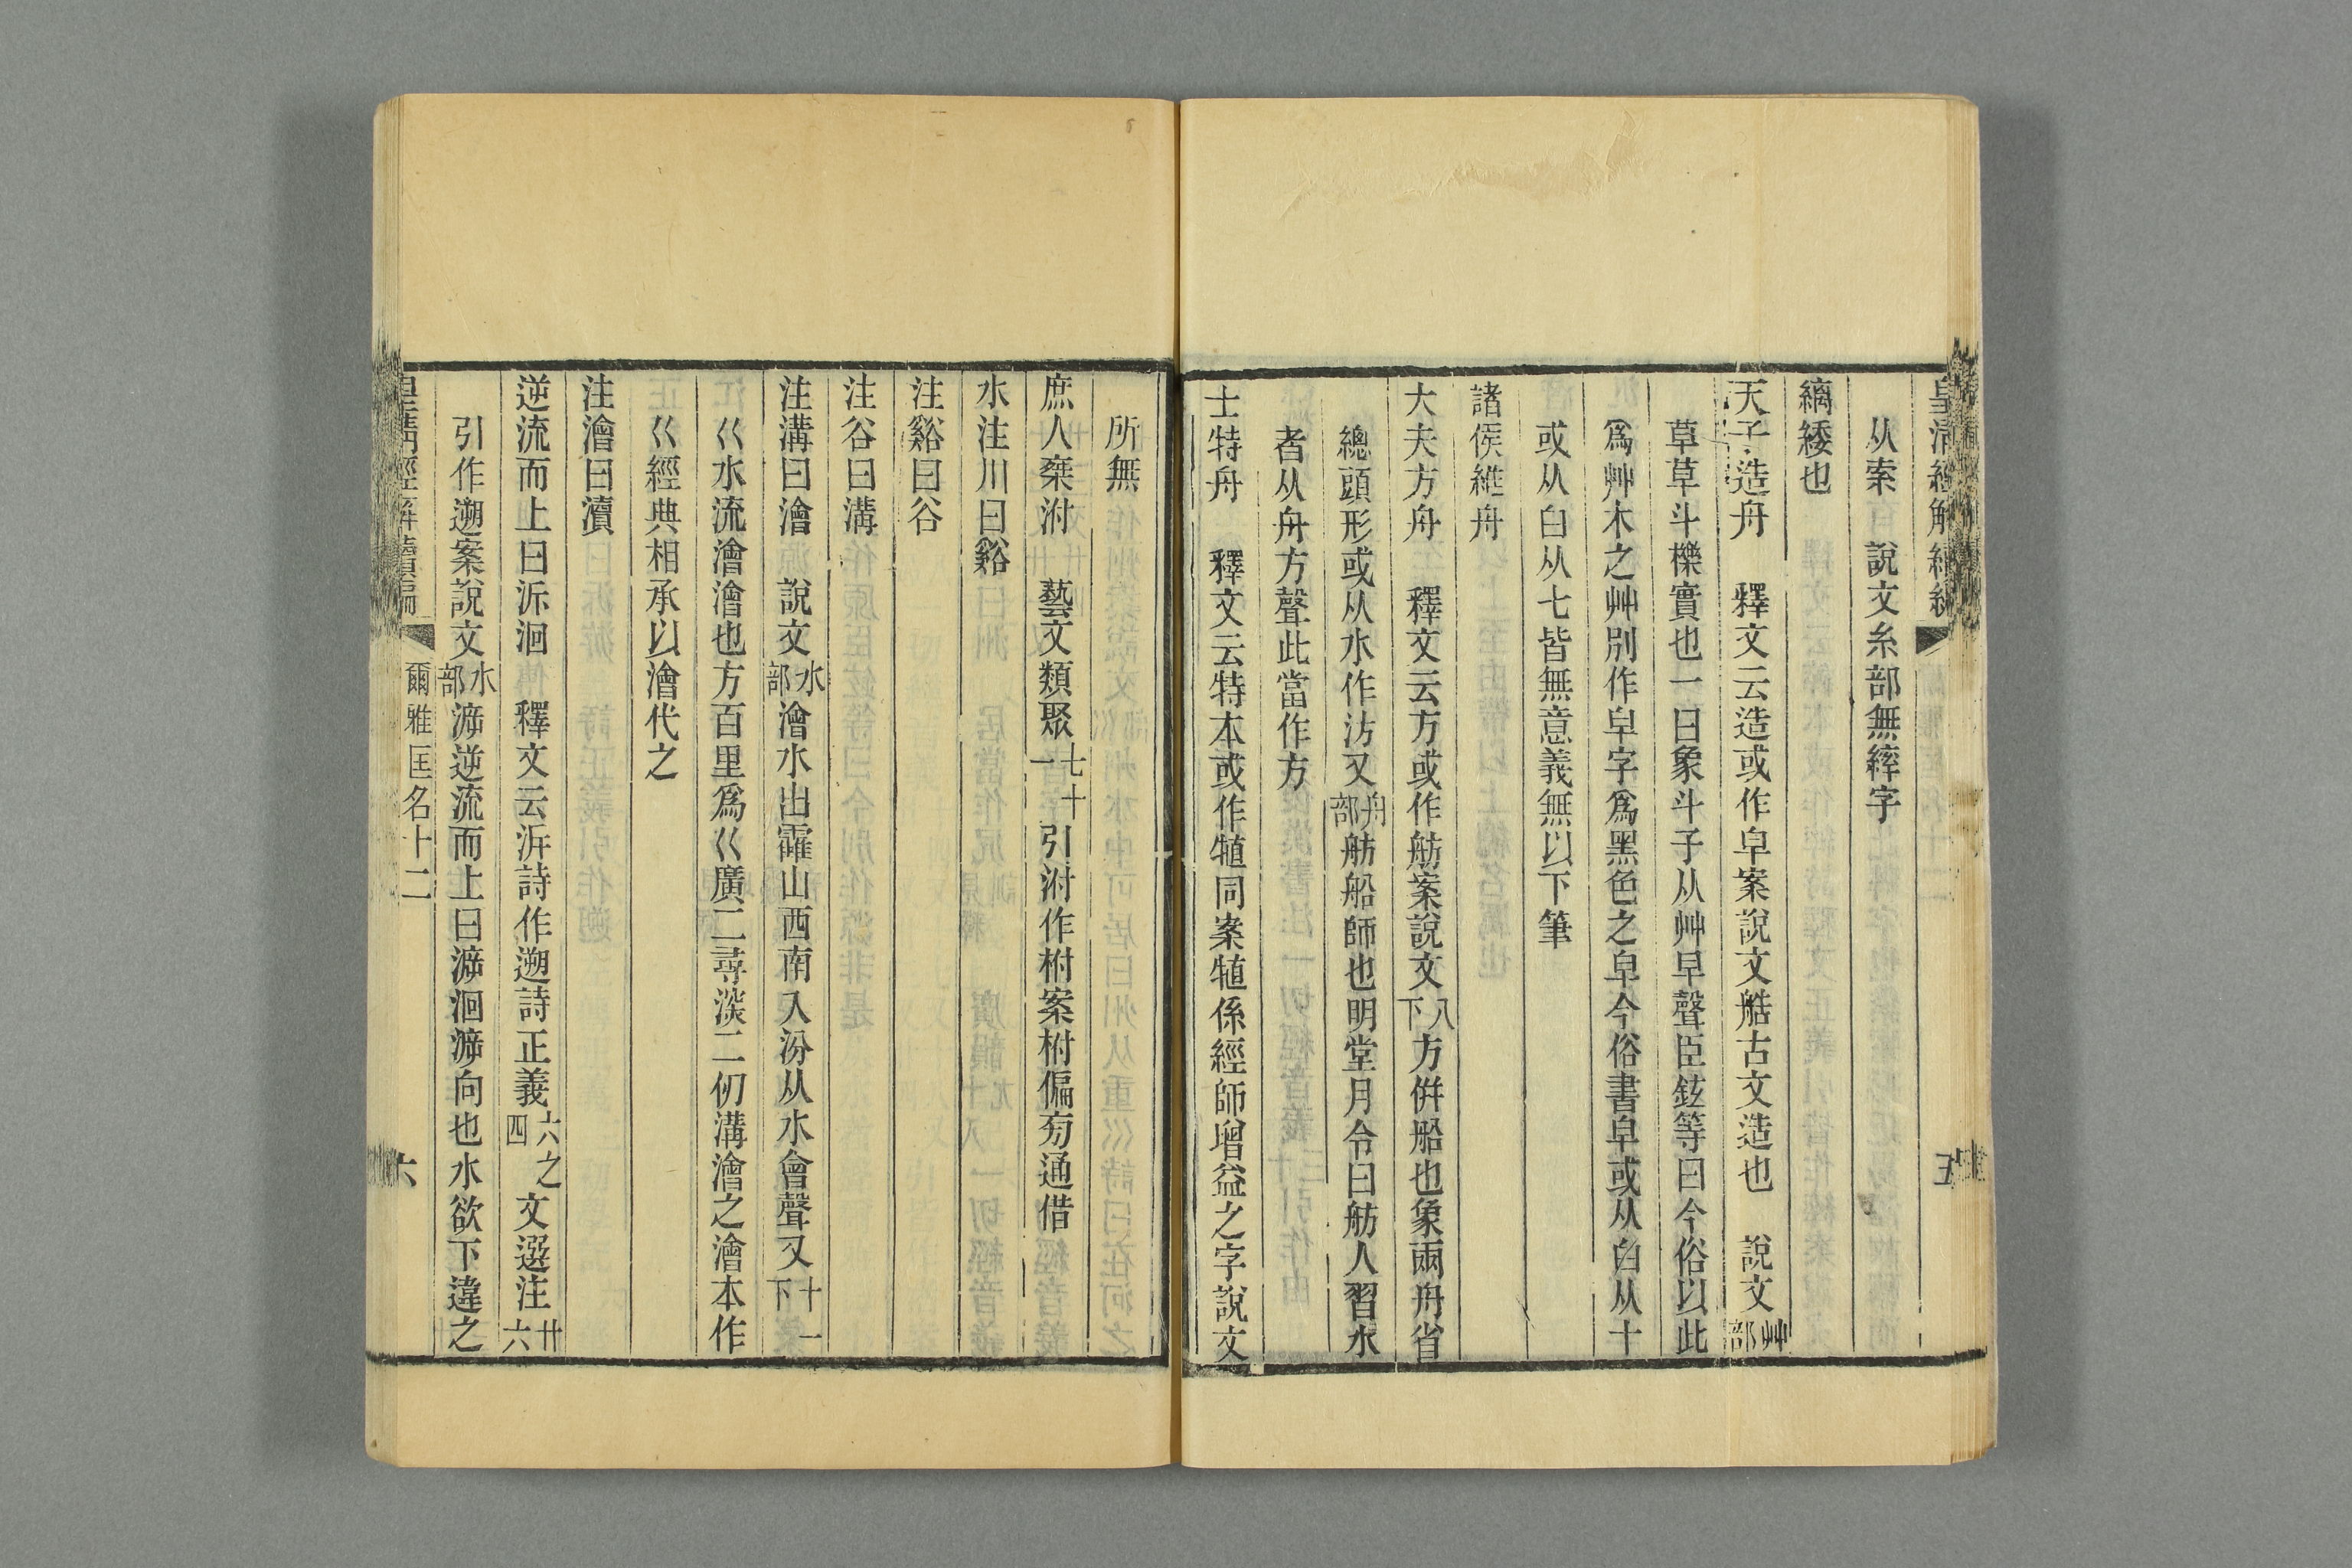 皇清經解續
五
从索　說文糸部無繂字
縭緌也
天子造舟　釋文云造或作皁案說文艁古文造也　說文艸部
草草斗櫟實也一曰象斗子从艸早聲臣鉉等曰今俗以此
爲艸木之艸別作皁字爲黑色之皁今俗書皁或从白从十
或从白从七皆無意義無以下筆
諸侯維舟
大夫方舟　釋文云方或作舫案說文八下方併船也象兩舟省
總頭形或从水作汸又舟部舫船師也明堂月令曰舫人習水
者从舟方聲此當作方
士特舟　釋文云特本或作犆同案犆係經師增益之字說文
所無
庶人椉泭　藝文類聚七十一引泭作柎案柎偏旁通借
水注川曰谿
注谿曰谷
注谷曰溝
注溝曰澮　說文水部澮水出霍山西南入汾从水會聲又十一下
巜水流澮澮也方百里爲巜廣二尋深二仞溝澮之澮本作
巜經典相承以澮代之
注澮曰瀆
逆流而上曰泝洄　釋文云泝詩作遡詩正義六之四文選注廿六
引作遡案說文水部㴑逆流而上曰㴑洄㴑向也水欲下違之
皇清經解續編
爾雅匡名十二
六